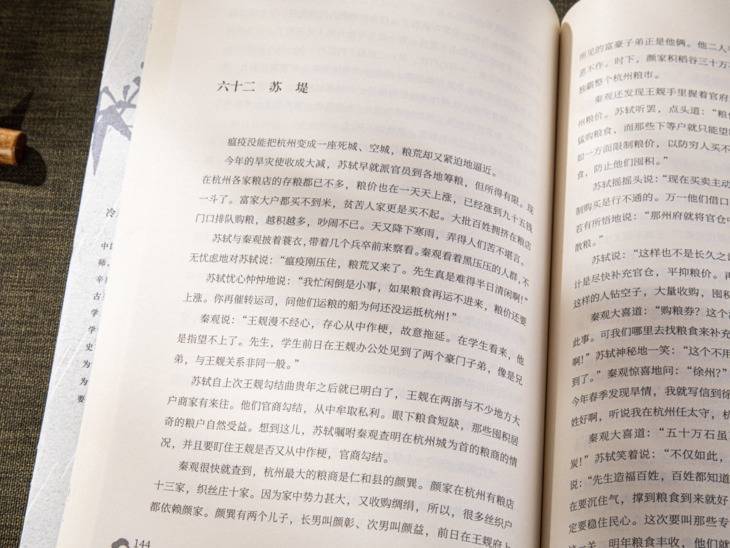 六十二 苏 堤
瘟疫没能把杭州变成一座死城、空城，粮荒却又紧迫地逼近。
今年的旱灾使收成大减，苏轼早就派官员到各地筹粮，但所得有限。现
在杭州各家粮店的存粮都已不多，粮价也在一天天上涨，已经涨到九十五钱
一斗了。富家大户都买不到米，贫苦人家更是买不起。大批百姓拥挤在粮店
门口排队购粮，越积越多，吵闹不已。天又降下寒雨，弄得人们苦不堪言。
苏轼与秦观披着蓑衣，带着几个兵卒前来察看。秦观看着黑压压的人群，不
无忧虑地对苏轼说：“瘟疫刚压住，粮荒又来了。先生真是难得半日清闲啊！”
苏轼忧心忡忡地说：“我忙闲倒是小事，如果粮食再运不进来，粮价还要
上涨。你再催转运司，问他们运粮的船为何还没运抵杭州！”
秦观说：“王觌漫不经心，存心从中作梗，故意拖延。在学生看来，他
是指望不上了。先生，学生前日在王觌办公处见到了两个豪门子弟，像是兄
弟，与王觌关系非同一般。”
苏轼自上次王觌勾结曲贵年之后就已明白了，王觌在两浙与不少地方大
户商家有来往。他们官商勾结，从中牟取私利。眼下粮食短缺，那些囤积居
奇的粮户自然受益。想到这儿，苏轼嘱咐秦观查明在杭州城为首的粮商的情
况，并且要盯住王觌是否又从中作梗，官商勾结。
秦观很快就查到，杭州最大的粮商是仁和县的颜巽。颜家在杭州有粮店
十三家，织丝庄十家。因为家中势力甚大，又收购绸绢，所以，很多丝织户
都依赖颜家。颜巽有两个儿子，长男叫颜彰、次男叫颜益，前日在王觌府上
144
所见的富豪子弟正是他俩。他二人
恶不作。时下，颜家积稻谷三十万
独霸整个杭州粮市。
秦观还发现王觌手里握着官府
州粮价。苏轼听罢，点头道：“粮
猛购粮食，而那些下等户就只能望
如一方面限制粮价，以防穷人买不
食，防止他们囤积。”
苏轼摇摇头说：“现在买卖主动
制购买是行不通的。万一他们借口
若有所悟地说：“那州府就将官仓
散粮。”
苏轼说：“这样也不是长久之
计是尽快补充官仓，平抑粮价。再
这样的人钻空子，大量收购，囤积
秦观大喜道：“购粮券？这个
此事。可我们哪里去找粮食来补充
啊！”苏轼神秘地一笑：“这个不用
到了。”秦观惊喜地问：“徐州？”
今年春季发现旱情，我就写信到徐
姓好啊，听说我在杭州任太守，杭
秦观大喜道：“五十万石虽
炭！”苏轼笑着说：“不仅如此，
说：“先生造福百姓，百姓都知道
在要沉住气，撑到粮食到来就好
定要稳住民心。这次要叫那些专
一关，明年粮食丰收，他们就